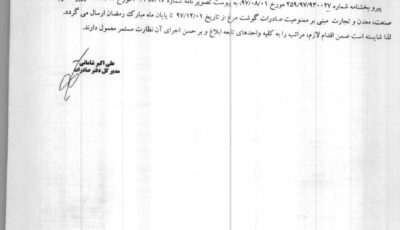 پیرو بخشنامه شماره ۲۵۹/۹۷/۹۳۰۰۲۷ مورخ ۹۷/۰۸/۰۱ به پیوست تصویر نامه شماره
صنعت، معدن و تجارت مبنی بر ممنوعیت صادرات گوشت مرغ از تاریخ ۹۷/۱۲/۰۱ تا پایان ماه مبارک رمضان ارسال می گردد.
لذا شایسته است ضمن اقدام لازم، مراتب را به کلیه واحدهای تابعه ابلاغ و بر حسن اجرای آن نظارت مستمر معمول دارند.
علی اکبر شامانی
مدیر کل دفتر صادرات